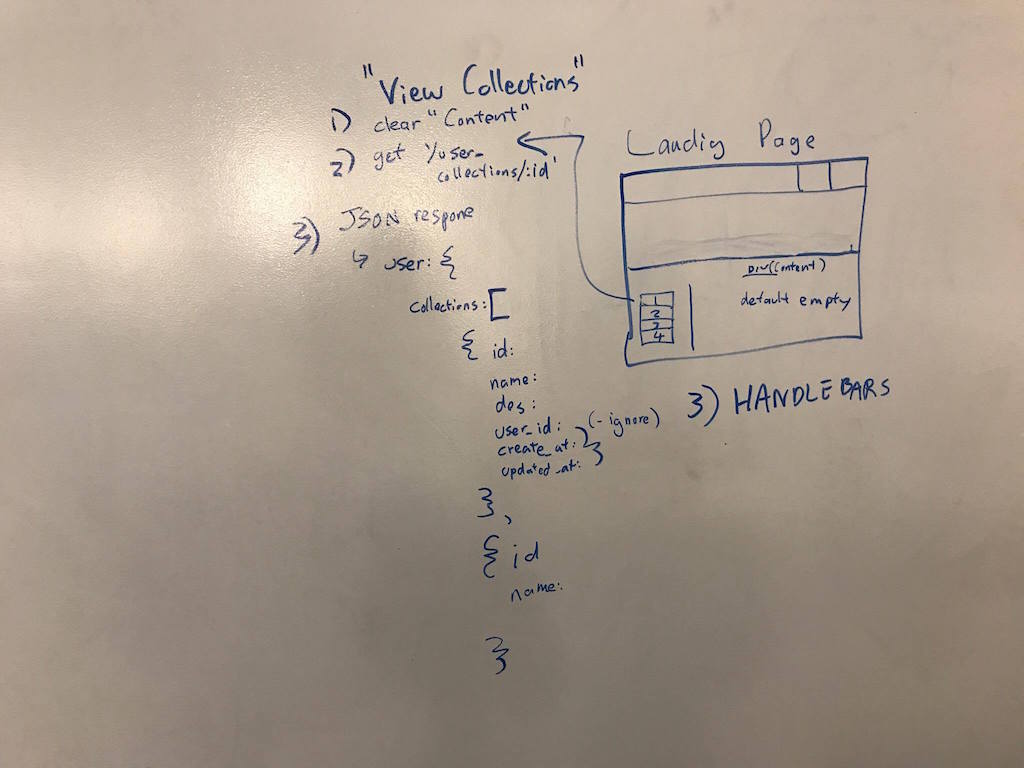 "View Collections"
1) clear "Content"
2) get '/user_
collections/:id'
3) JSON respone
↳ user: {
collections: [
{ id:
name:
des:
user_id: } (- ignore)
create_at:
updated_at:
},
{ id
name:
}
Landig Page
DIV(Content)
default empty
1
2
3
4
3) HANDLEBARS